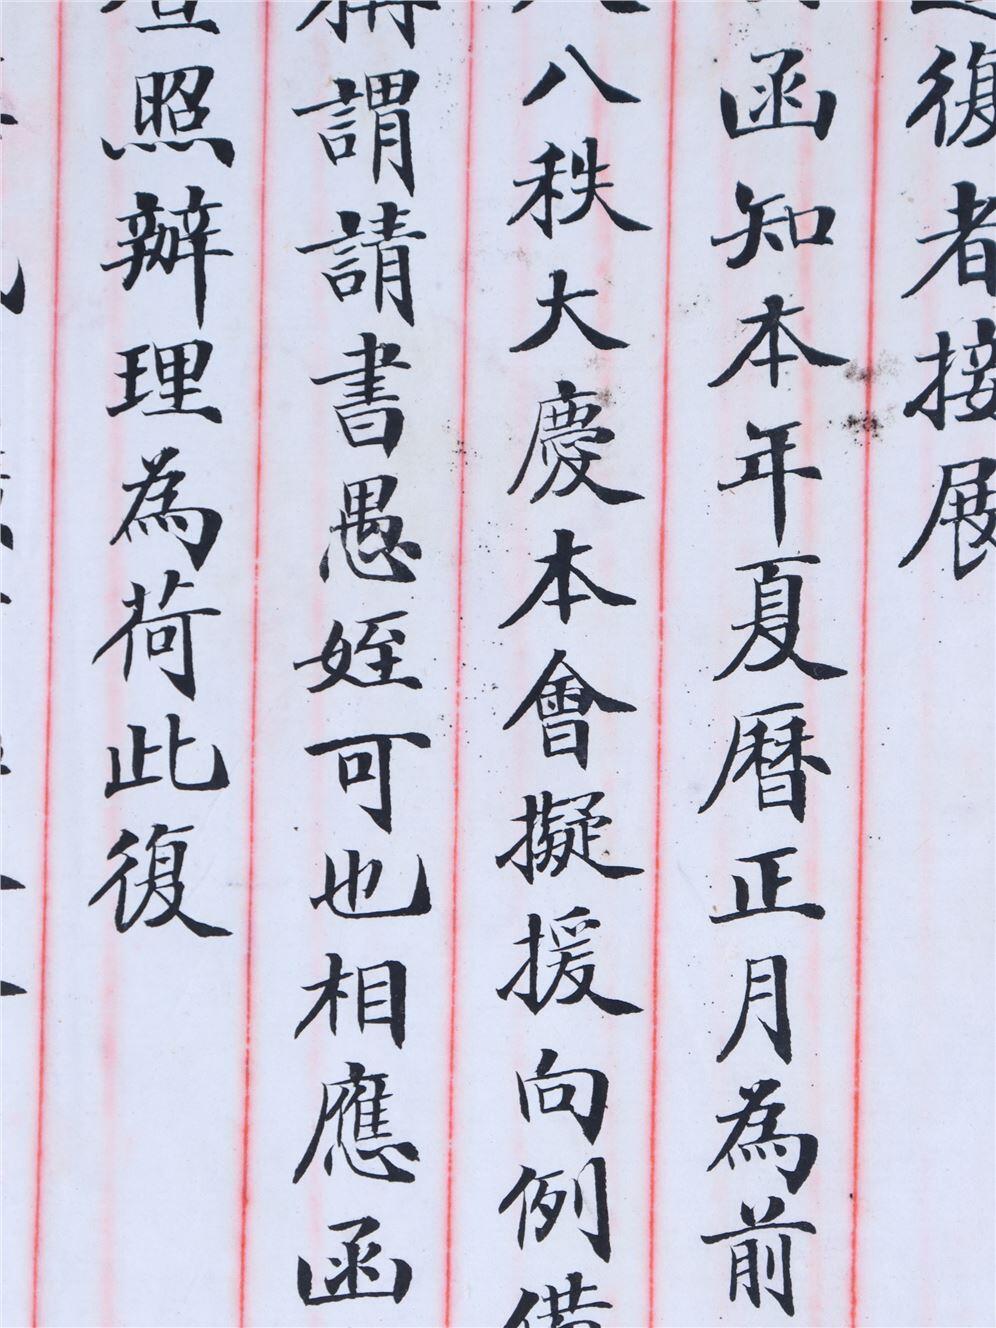 復者接展
函知本年夏曆正月為前
八秩大慶本會擬援向例備
稱謂請書愚姪可也相應函
查照辦理為荷此復